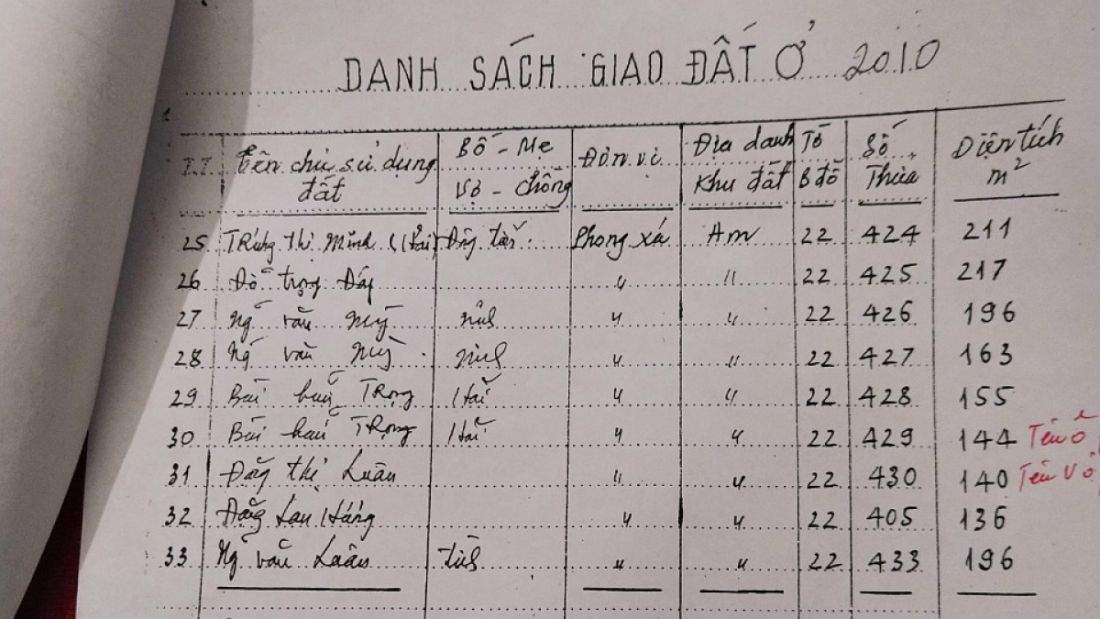 DANH SÁCH GIAO ĐẤT Ở 2010
T.T. Tên chủ sử dụng đất Bố - Mẹ Vợ - Chồng Đơn vị Địa danh Khu đất Tờ B đồ Số Thửa Diện tích m²
25 Thị Minh Phong xá Am 22 424 211
26 Đỗ trọng " " 22 425 217
27 Ng văn Mỹ " " 22 426 196
28 Ng văn Mỹ " " 22 427 163
29 Bùi Trọng " " 22 428 155
30 Bùi Trọng " " 22 429 144 Tên
31 Đặng thị Luân " " 22 430 140 Tên Vợ
32 Đặng " " 22 405 136
33 Ng văn Luân " " 22 433 196